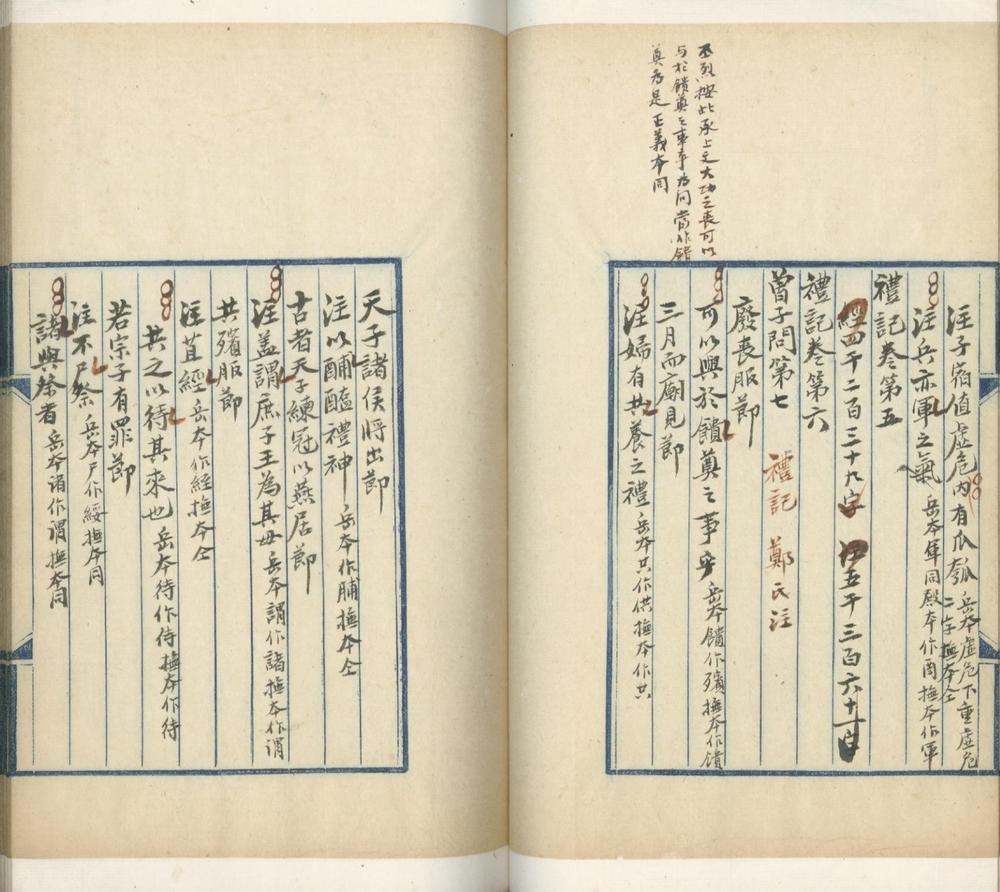 丕烈按此承上文大功之喪可以
与於饋奠之事乎為问當作饋
奠為是正義本同
注子宿值虛危內有瓜瓠 岳本虛危下重虛危
二字撫本仝
注兵亦軍之氣 岳本軍同殿本作周撫本作軍
禮記卷第五
經四千二百三十九字 注五千三百六十一字
禮記卷第六
曾子問第七 禮記 鄭氏注
廢喪服節
可以與於饋奠之事乎 岳本饋作殯撫本作饋
三月而廟見節
注婦有共養之禮 岳本共作供撫本作共
天子諸侯將出節
注以酺醢禮神 岳本作脯撫本仝
古者天子練冠以燕居節
注蓋謂庶子王為其母 岳本謂作諸撫本作謂
共殯服節
注苴經 岳本作絰撫本仝
共之以待其來也 岳本待作侍撫本作待
若宗子有罪節
注不尸祭 岳本尸作綏撫本同
諸與祭者 岳本诸作谓撫本同